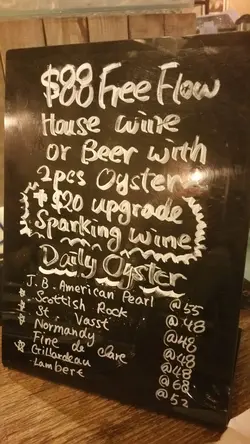 $88 Free Flow
House wine
or Beer with
2pcs Oyster
+ $20 upgrade
Sparking wine
Daily Oyster
J.B. American Pearl @55
Scottish Rock @48
St. Vasst @48
Normandy @48
Fine de clare @48
Gillardeau @68
Lambert @52